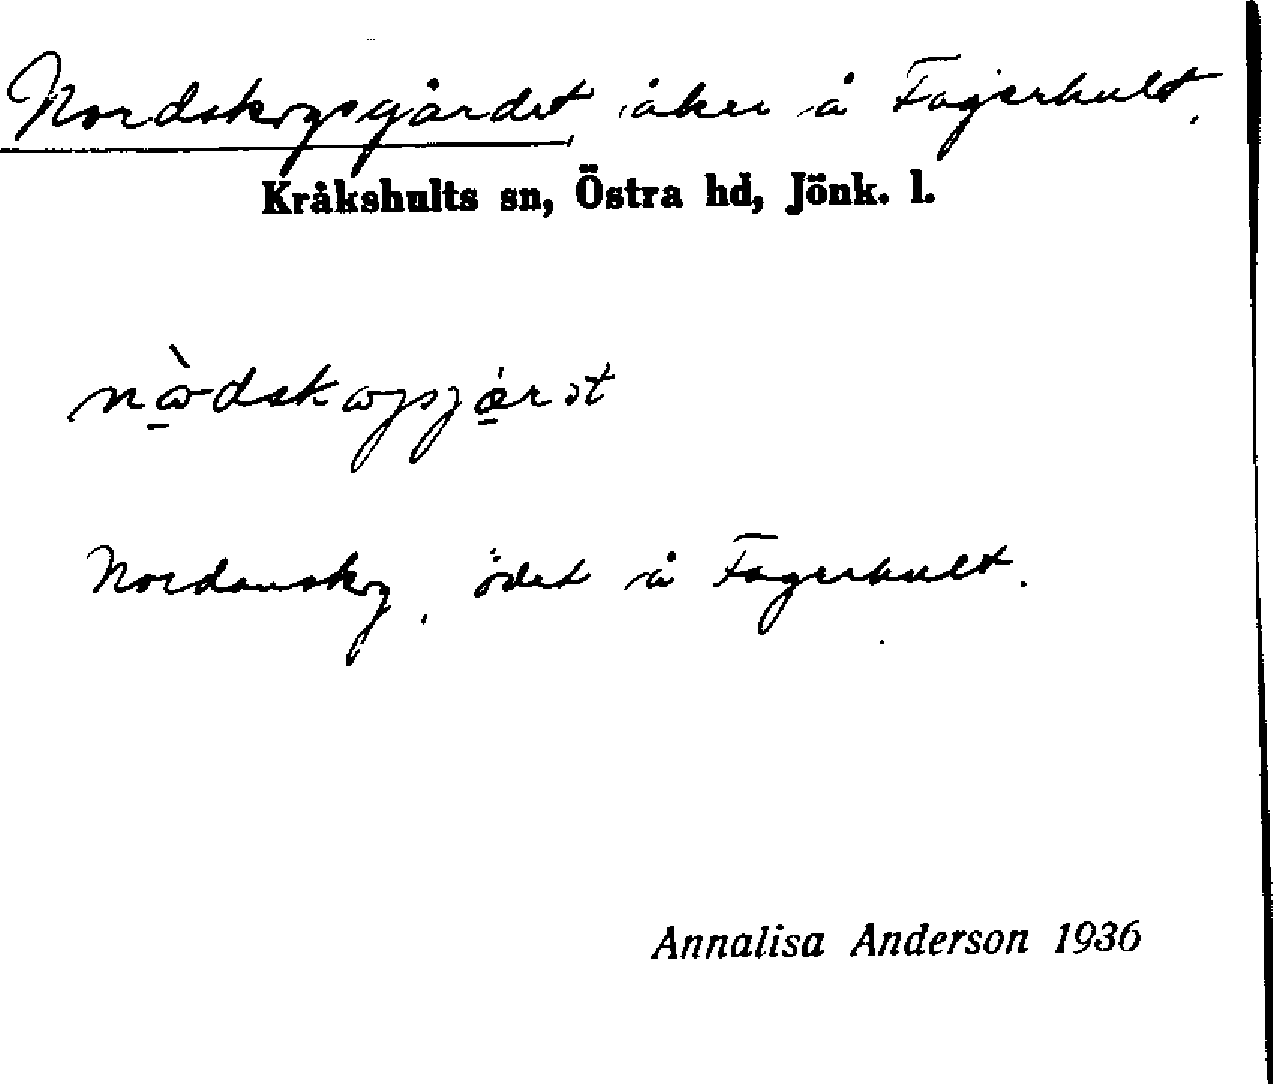 Nordskogsgärdet, åker å Fagerhult.
Kråkshults sn, Östra hd, Jönk. l.
Nordanskog, ödet å Fagerhult.
Annalisa Anderson 1936